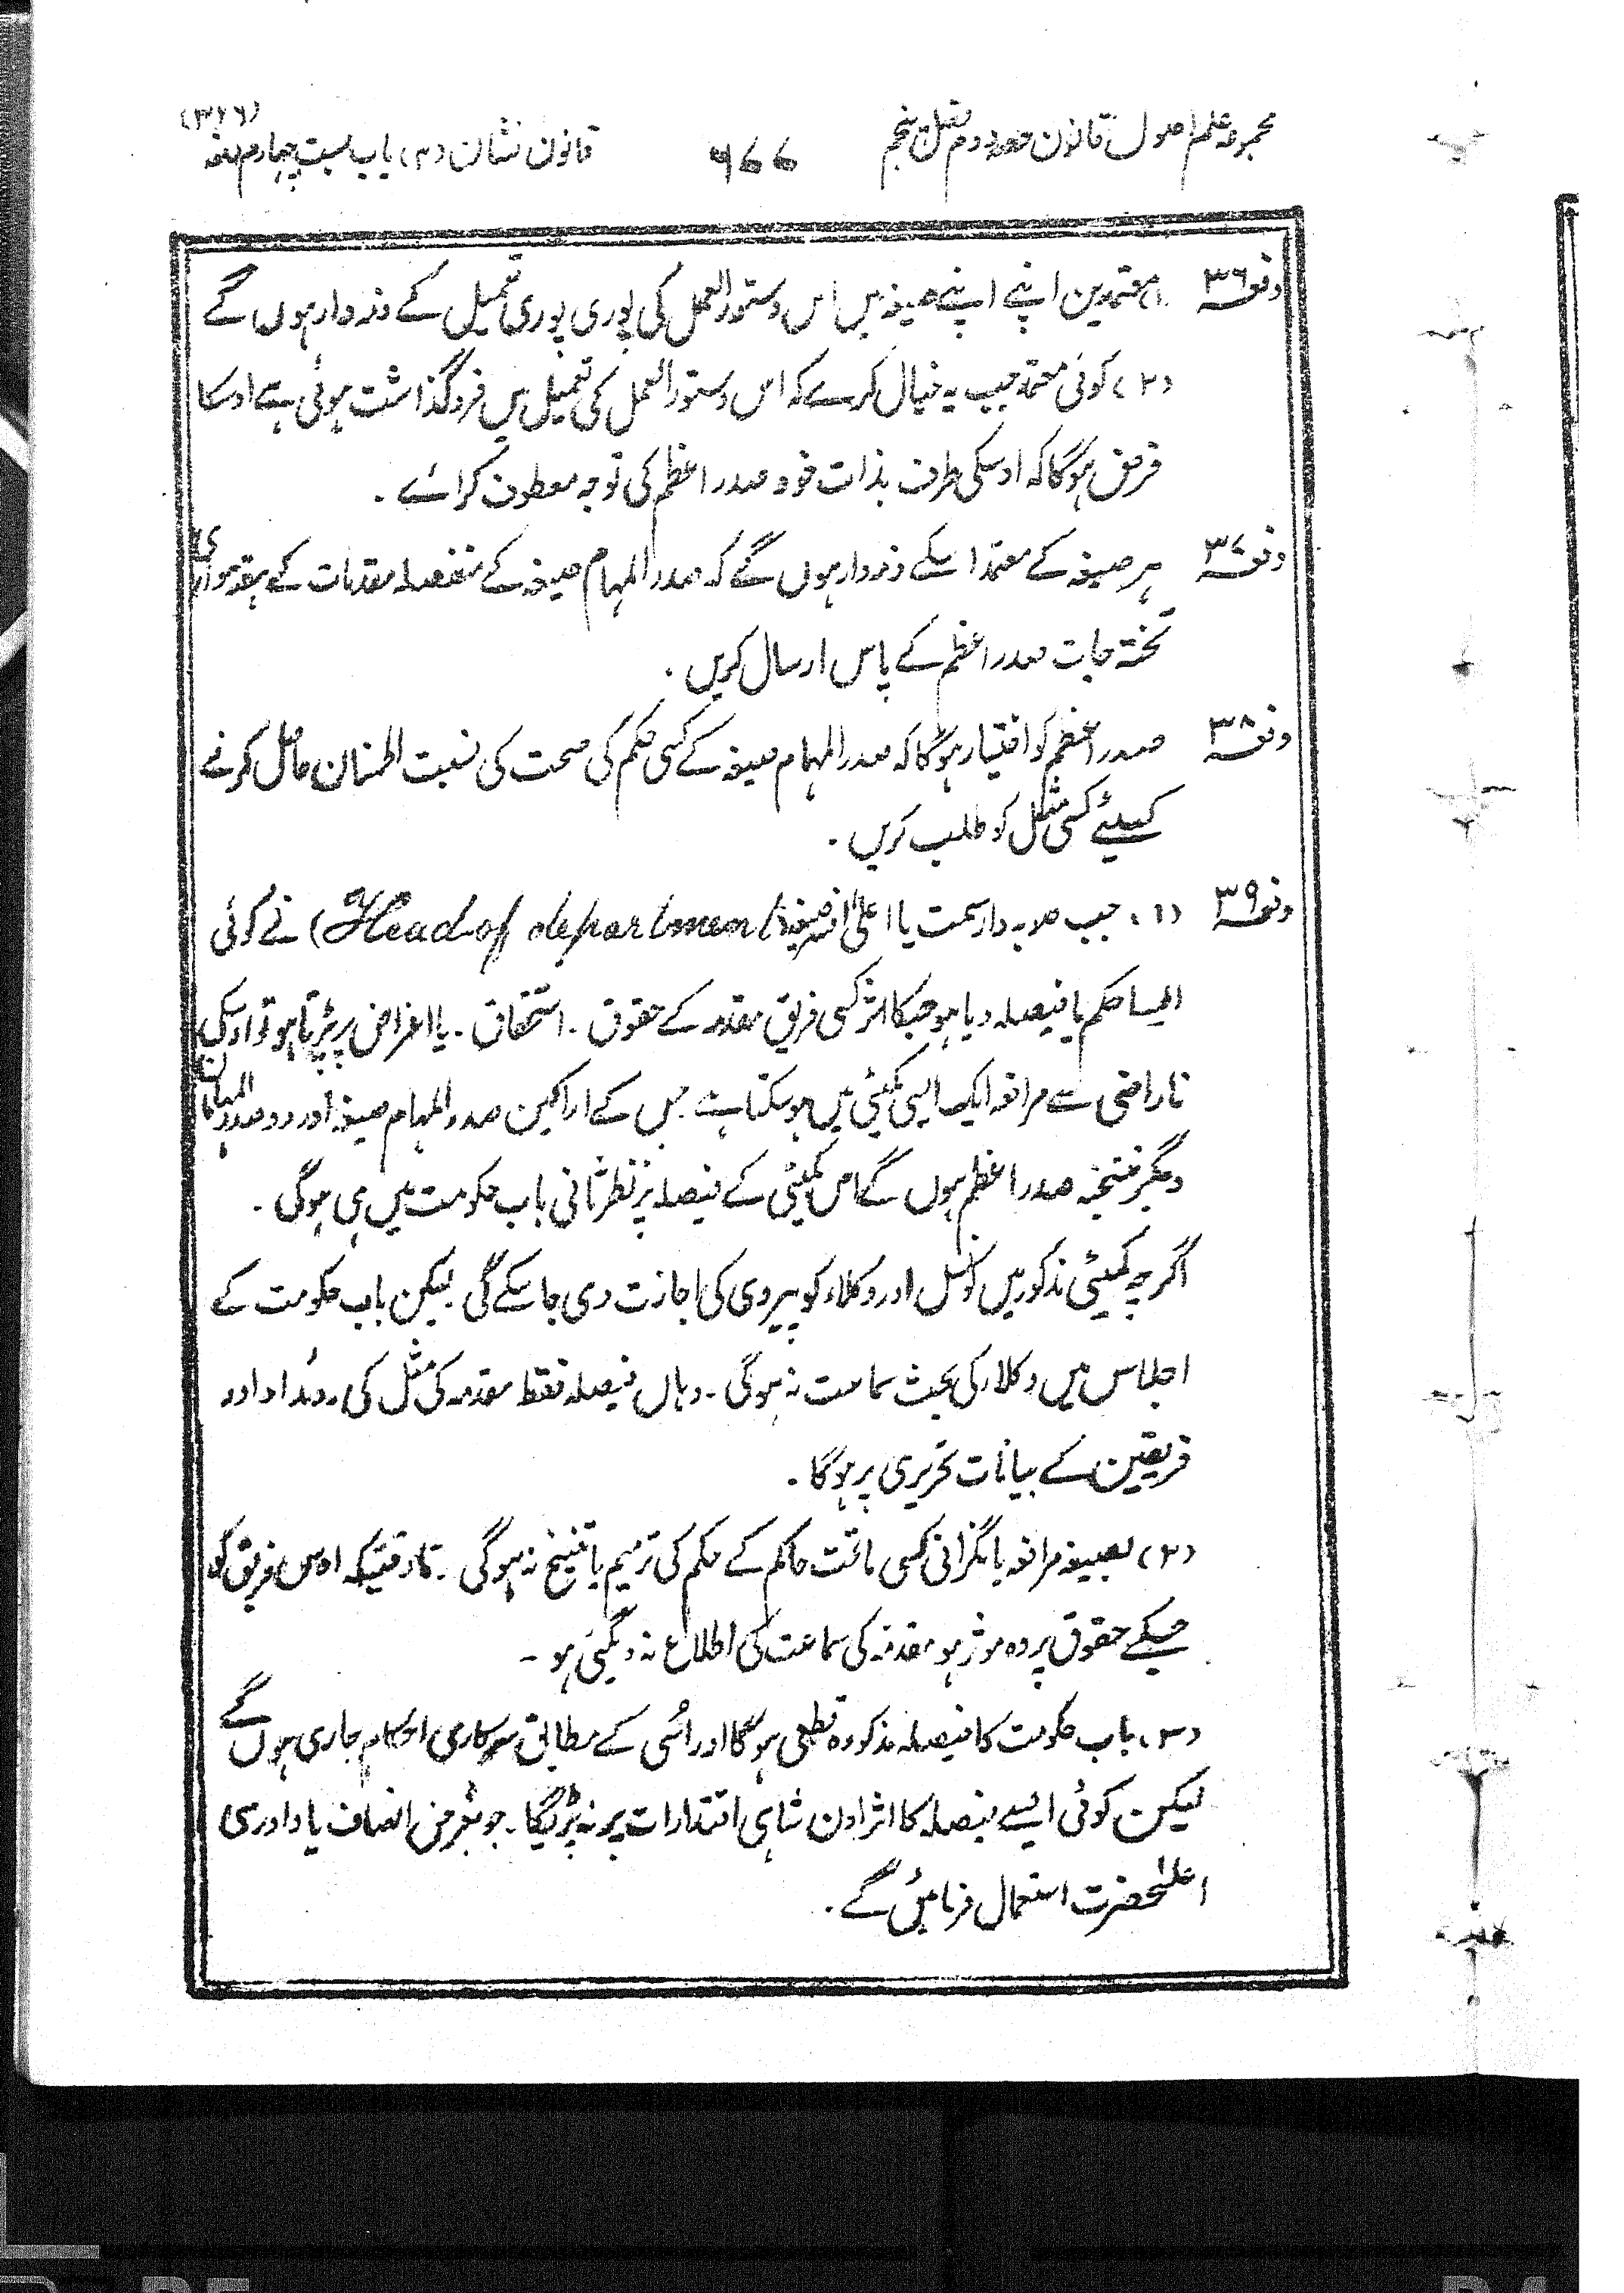 مجموعہ علم اصول قانون حصہ دوم فصل پنجم
۹۶۶
قانون نشان (۲) باب بست چہارم دفعہ (۳۶۶)
دفعہ ۳۶ (۱) معتمدین اپنے اپنے صیغہ میں اس دستور العمل کی پوری پوری تعمیل کے ذمہ دار ہوں گے
(۲) کوئی معتمد جب یہ خیال کرے کہ اس دستور العمل کی تعمیل میں فروگذاشت ہوئی ہے اوسکا
فرض ہوگا کہ اوسکی طرف بذات خود صدر اعظم کی توجہ معطوف کرائے ۔
دفعہ ۳۷ ہر صیغہ کے معتمد اسکے ذمہ دار ہوں گے کہ صدر المہام صیغہ کے منفصلہ مقدمات کے ہفتہ واری
تختہ جات صدر اعظم کے پاس ارسال کریں ۔
دفعہ ۳۸ صدر اعظم کو اختیار ہوگا کہ صدر المہام صیغہ کے کسی حکم کی صحت کی نسبت اطمنان حاصل کرنے
کیلئے کسی مثل کو طلب کریں ۔
دفعہ ۳۹ (۱) جب صوبہ دار سمت یا اعلیٰ افسر صیغہ (Head of department) نے کوئی
ایسا حکم یا فیصلہ دیا ہو جسکا اثر کسی فریق مقدمہ کے حقوق ۔ استحقاق ۔ یا اغراض پر پڑتا ہو تو اوسکی
ناراضی سے مرافعہ ایک ایسی کمیٹی میں ہوسکتا ہے جس کے اراکین صدر المہام صیغہ اور دو صدر المہامان
دیگر منتخبہ صدر اعظم ہوں گے اس کمیٹی کے فیصلہ پر نظر ثانی باب حکومت میں ہی ہوگی ۔
اگرچہ کمیٹی مذکور میں کونسل اور وکلاء کو پیروی کی اجازت دی جاسکے گی لیکن باب حکومت کے
اجلاس میں وکلاء کی بحث سماعت نہ ہوگی ۔ وہاں فیصلہ فقط مقدمہ کی مثل کی روئداد اور
فریقین کے بیانات تحریری پر ہوگا ۔
(۲) بصیغہ مرافعہ یا نگرانی کسی ماتحت حاکم کے حکم کی ترمیم یا تنسیخ نہ ہوگی ۔ تاوقتیکہ اوس فریق کو
جسکے حقوق پر وہ موثر ہو مقدمہ کی سماعت کی اطلاع نہ دیگئی ہو ۔
(۳) باب حکومت کا فیصلہ مذکورہ قطعی ہوگا اور اُسی کے مطابق سرکاری احکام جاری ہوں گے
لیکن کوئی ایسے فیصلہ کا اثر اون شاہی اقتدارات پر نہ پڑیگا ۔ جو بغرض انصاف یا دادرسی
اعلیٰحضرت استعمال فرمائیں گے ۔